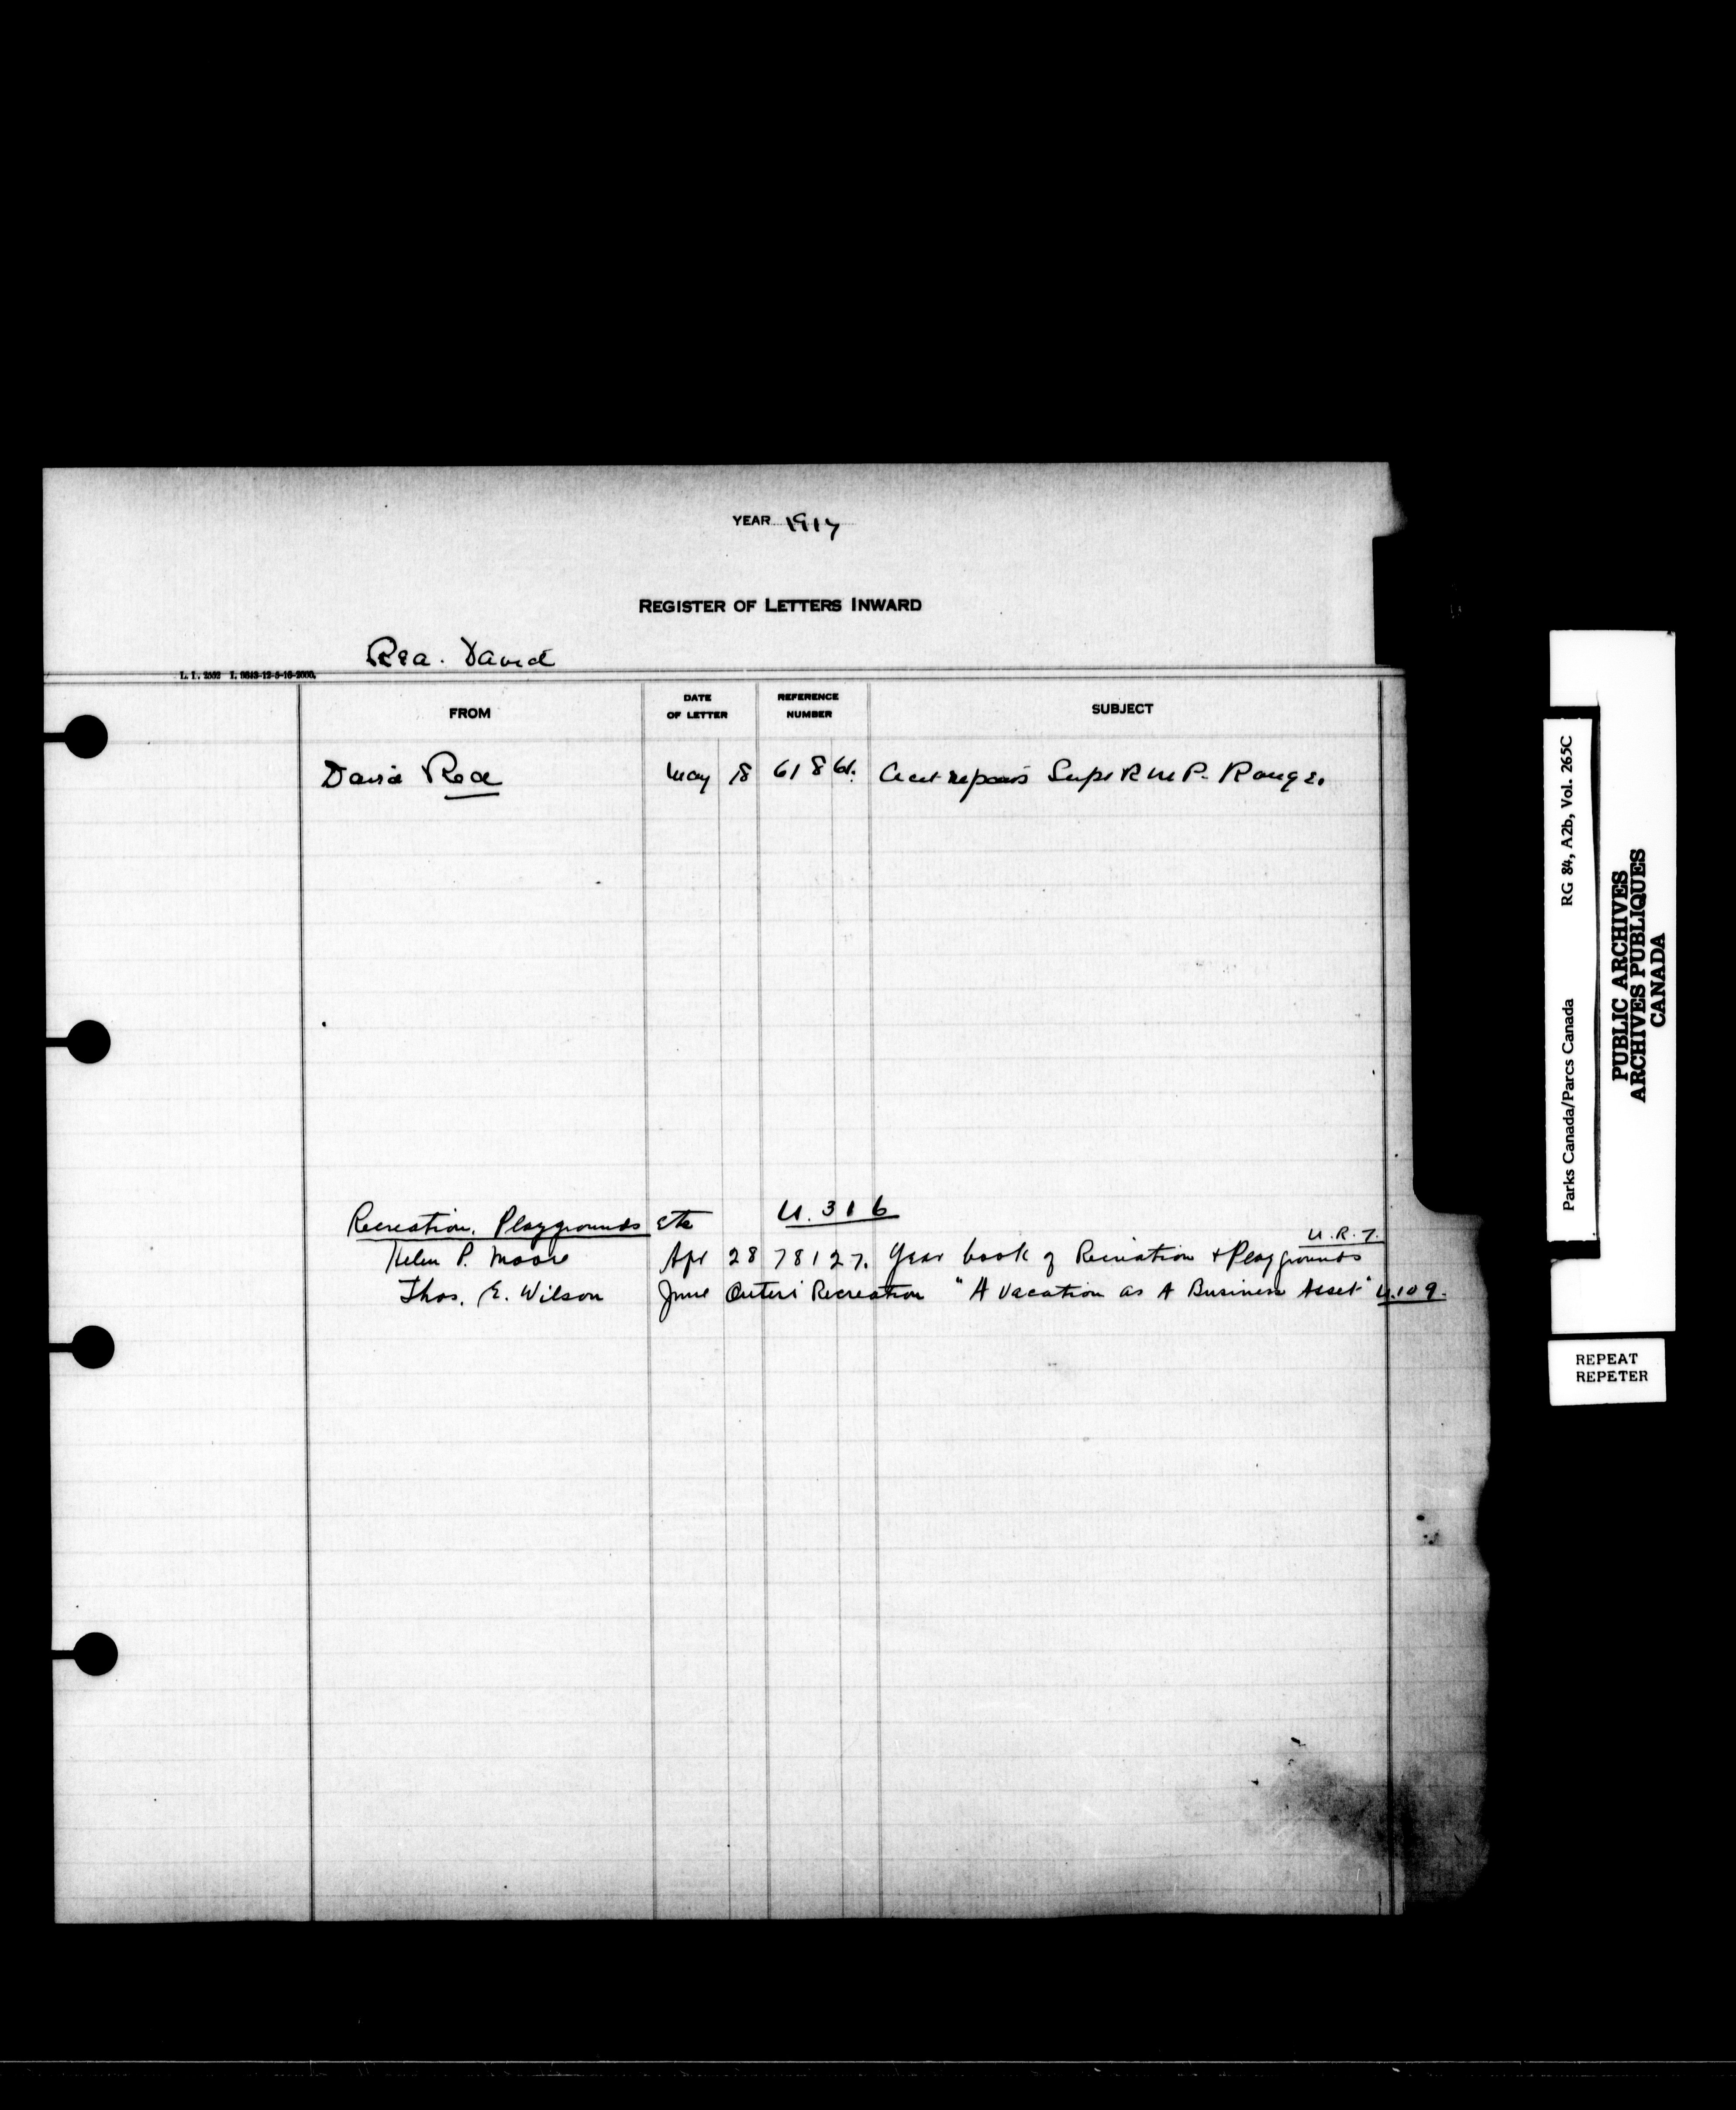 YEAR 1917
REGISTER OF LETTERS INWARD
Rea. David
L. I. 2552
FROM
DATE OF LETTER
REFERENCE NUMBER
SUBJECT
David Rea May 18 6186 Acct repairs Supt R M P. Range.
Recreation, Playgrounds etc U.316
U.R.7.
Helen P. Moore Apr 28 78127. Year book of Recreation & Playgrounds
Thos. E. Wilson June Recreation "A Vacation as A Business Asset" U.109.
Parks Canada/Parcs Canada RG 84, A2b, Vol. 265C
PUBLIC ARCHIVES
ARCHIVES PUBLIQUES
CANADA
REPEAT
REPETER